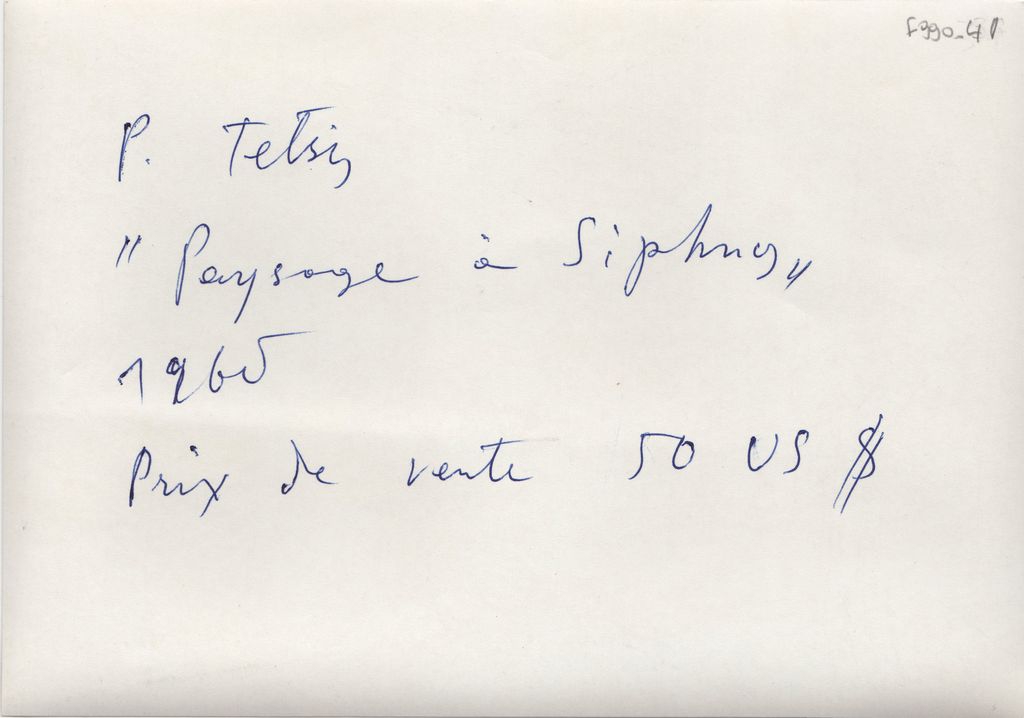 F990-41
P. Tetsis
" Paysage à Siphnos "
1965
Prix de vente 50 US $